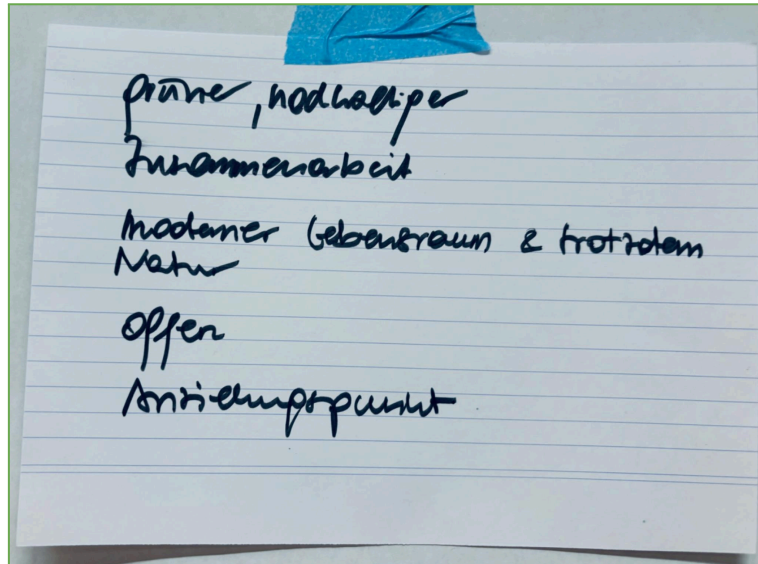 grüner, nachhaltiger
Zusammenarbeit
moderner Lebensraum & trotzdem
Natur
offen
Anziehungspunkt